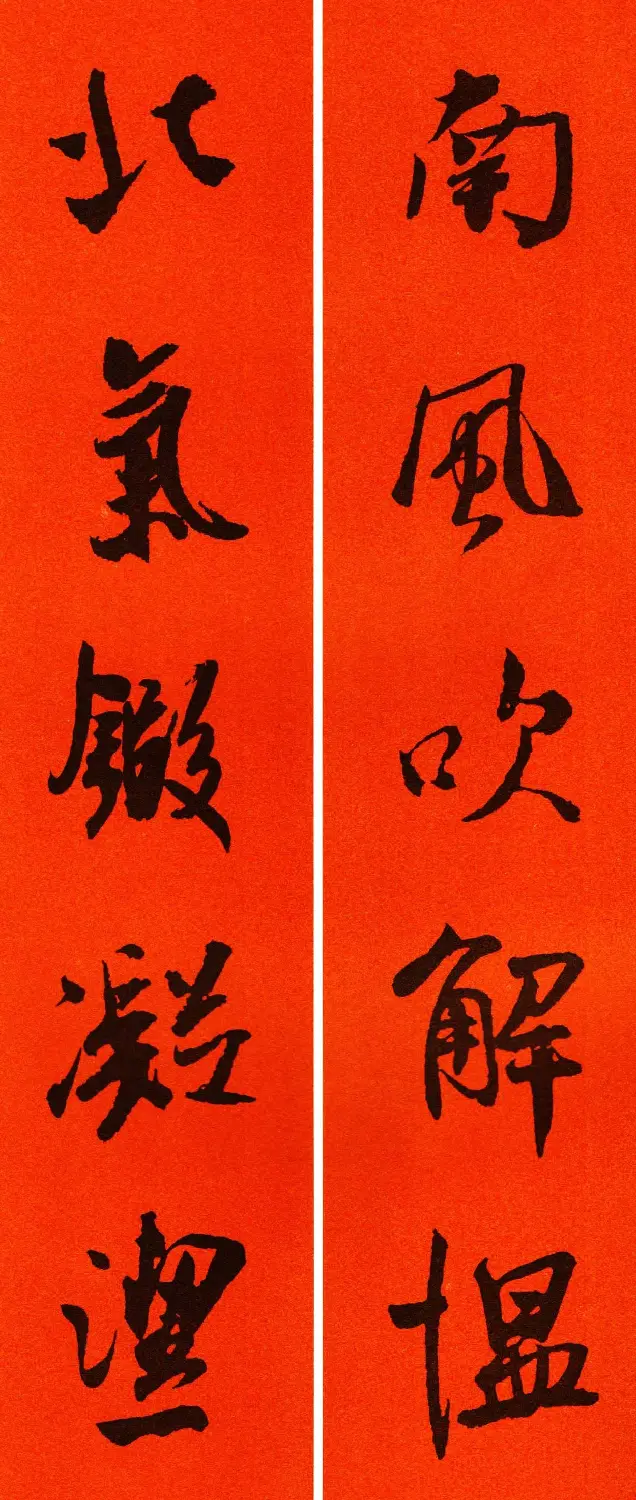 南風吹解慍
北氣凝